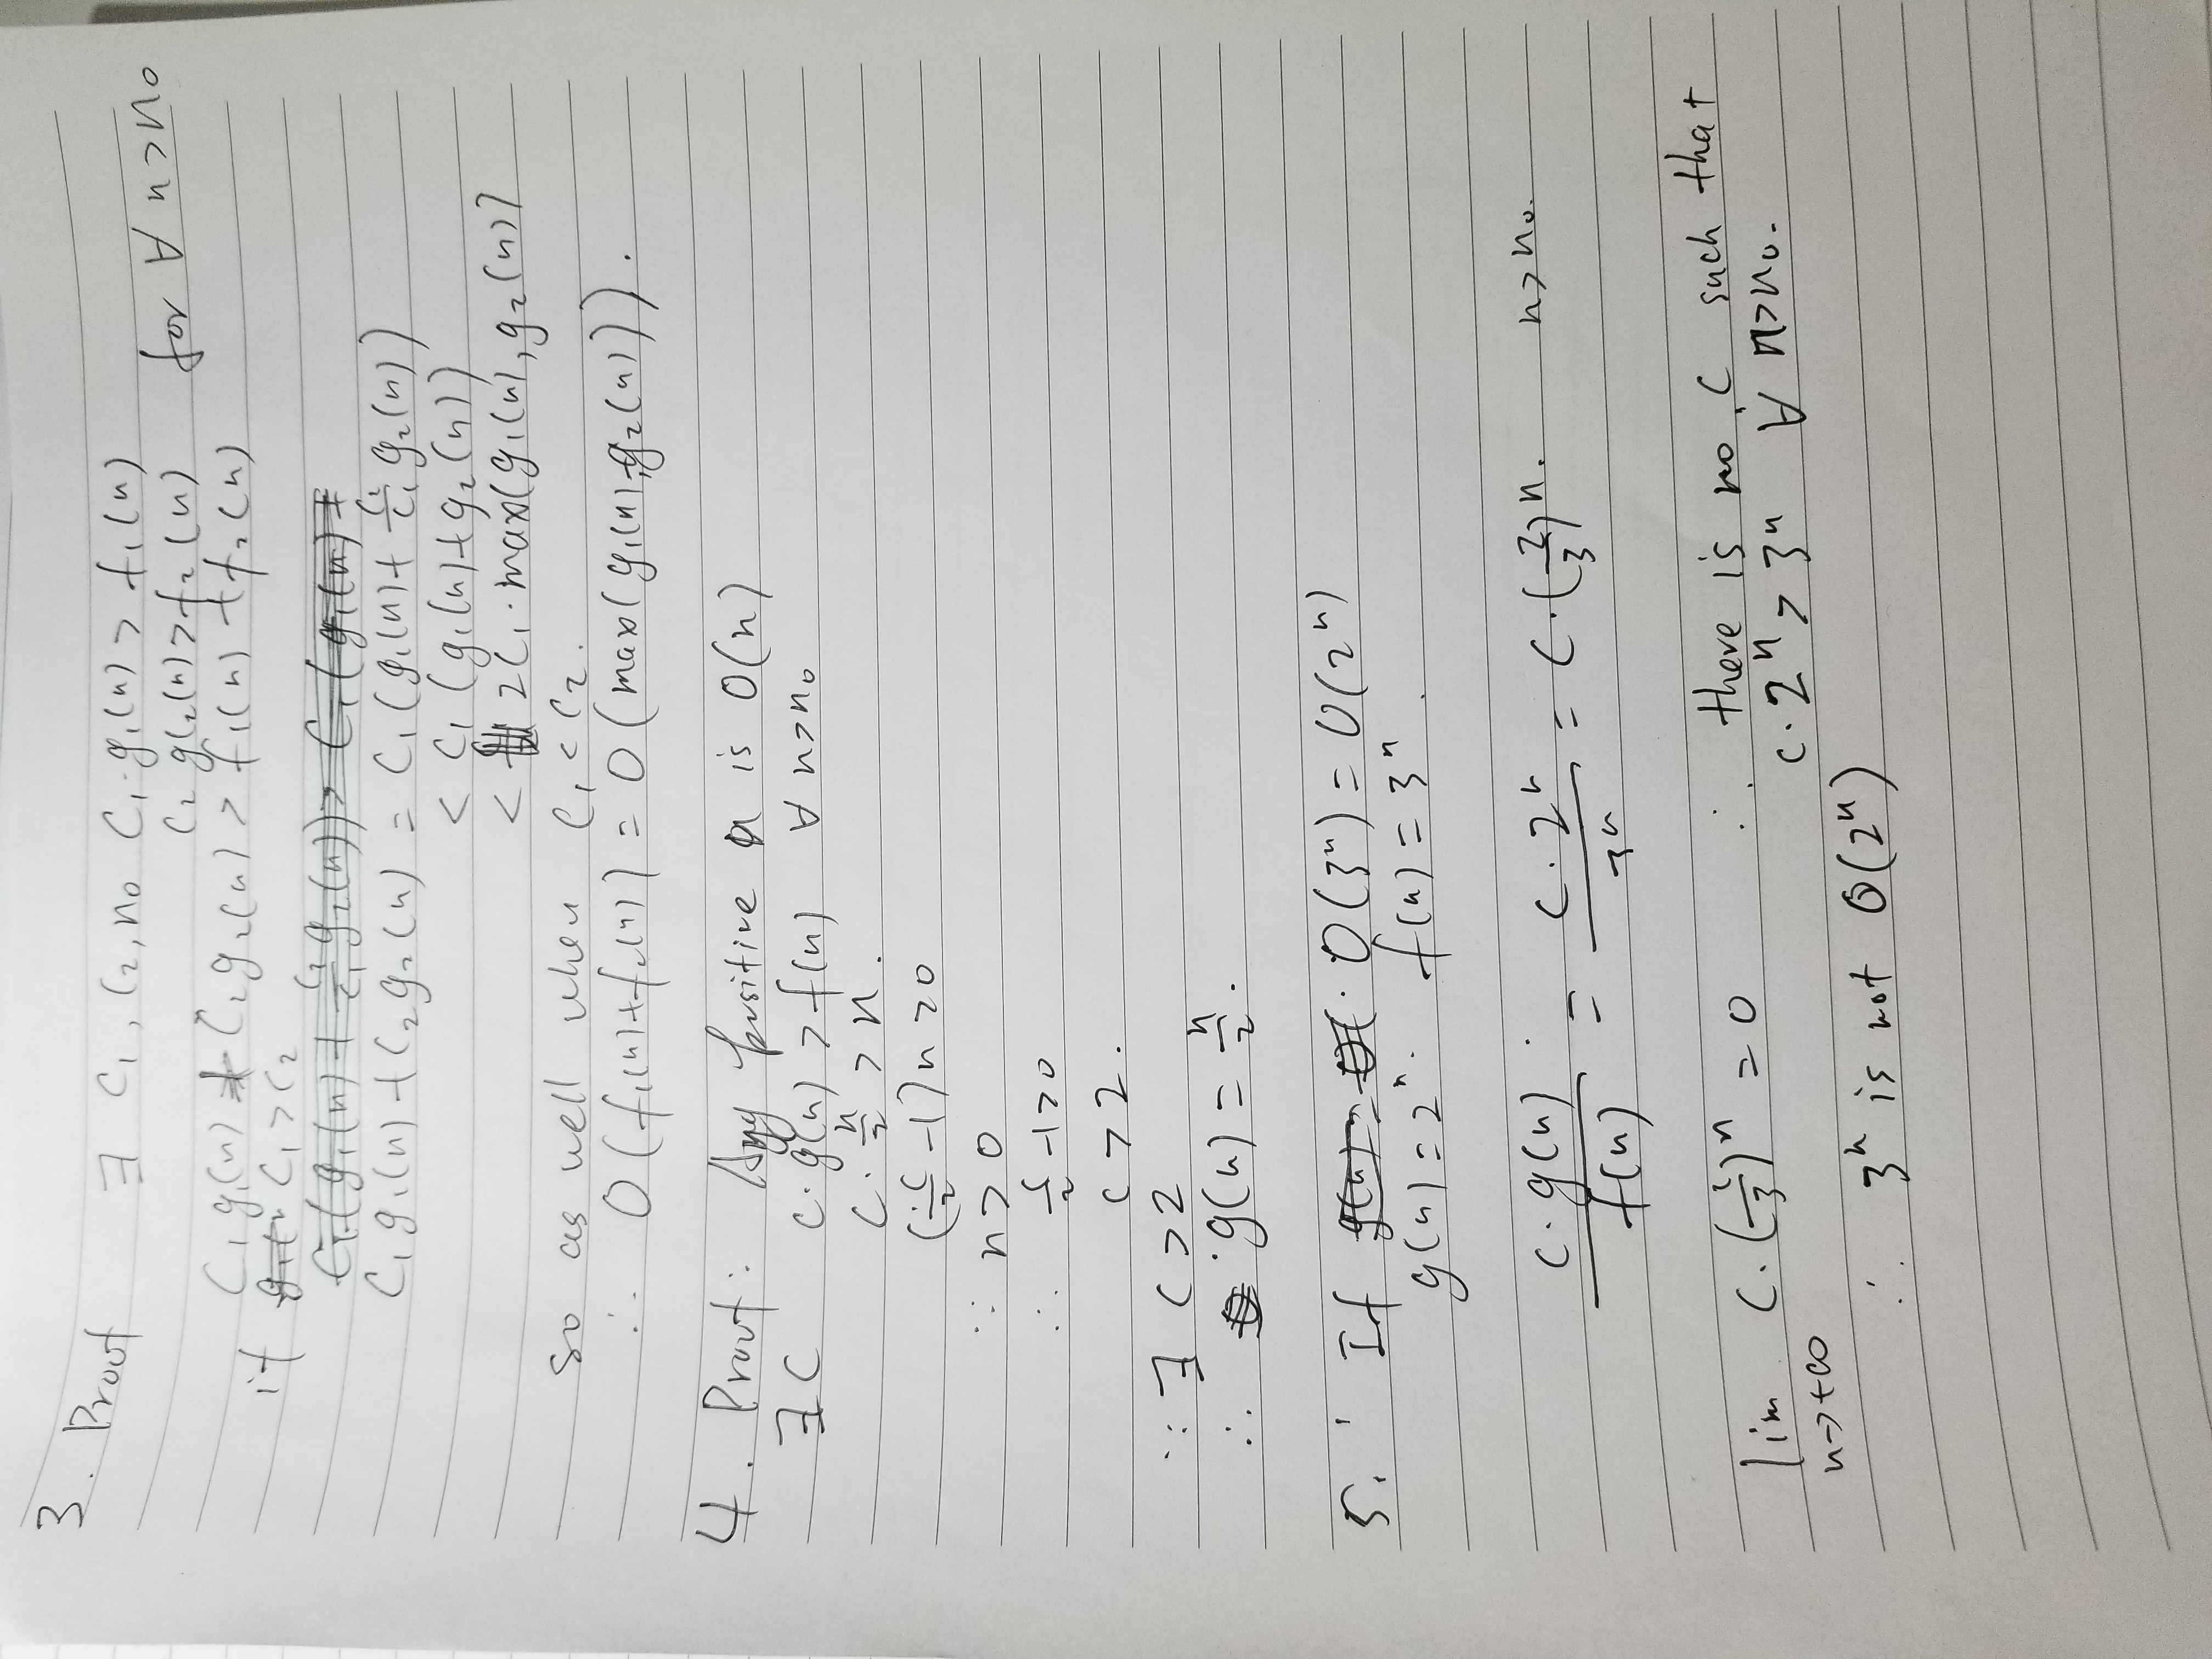 3. Proof ∃ C₁, C₂, n₀ C₁·g₁(n) > f₁(n)
C₂ g(₂(n) > f₂(n) for ∀ n>n₀
C₁g₁(n) + C₂g₂(n) > f₁(n) + f₂(n)
if C₁ > C₂
C₁g₁(n) + C₂g₂(n) = C₁(g₁(n) + C₂/C₁ g₂(n))
< C₁ (g₁(n)+g₂(n))
< 2C₁·max(g₁(n), g₂(n))
so as well when C₁ < C₂.
∴ O(f₁(n)+f₂(n)) = O(max(g₁(n), g₂(n))).
4. Proof: Any positive n is O(n)
∃ C C·g(n) > f(n) ∀ n>n₀
C·n/2 > n.
(C/2 -1)n >0
∵ n > 0
∴ C/2 -1>0
C > 2.
∵ ∃ C >2
∴ g(n) = n/2.
5. If O(3ⁿ) = O(2ⁿ)
g(n) = 2ⁿ. f(n) = 3ⁿ.
C·g(n)/f(n) = C·2ⁿ/3ⁿ = C·(2/3)ⁿ. n>n₀.
lim n→+∞ C·(2/3)ⁿ = 0 ∴ there is no C such that
C·2ⁿ > 3ⁿ ∀ n>n₀.
∴ 3ⁿ is not O(2ⁿ)